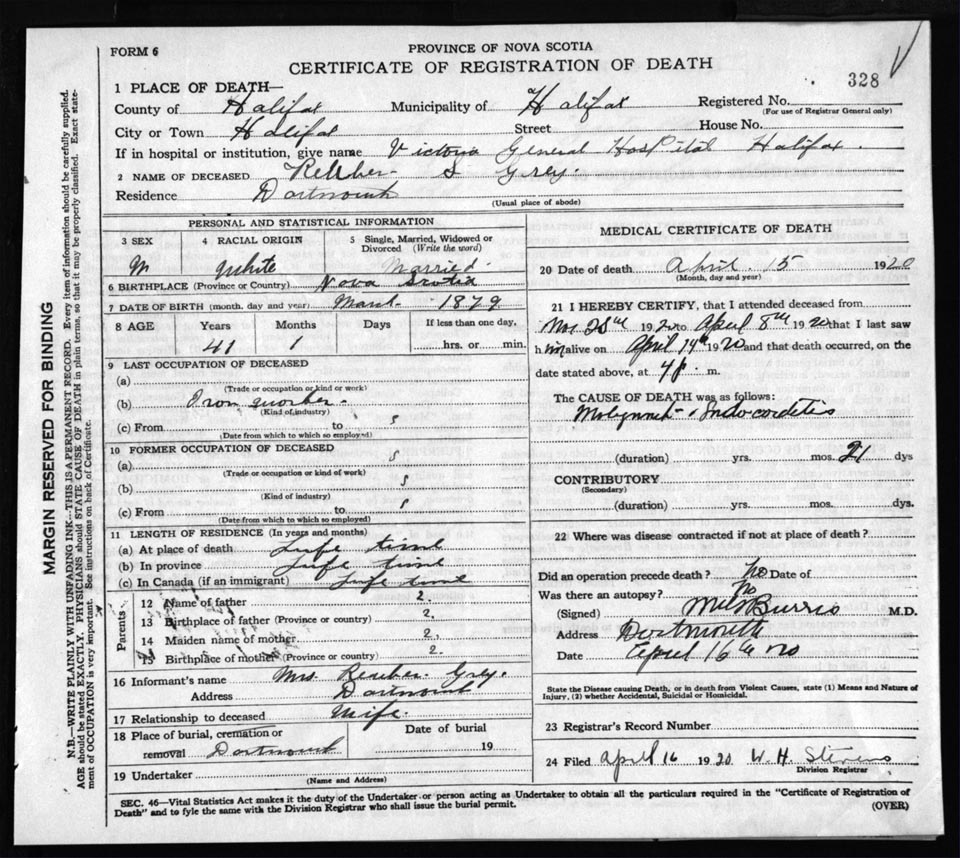 FORM 6
PROVINCE OF NOVA SCOTIA
CERTIFICATE OF REGISTRATION OF DEATH
328
1 PLACE OF DEATH—
County of Halifax Municipality of Halifax Registered No.
(For use of Registrar General only)
City or Town Halifax Street House No.
If in hospital or institution, give name Victoria General Hospital Halifax.
2 NAME OF DECEASED Reuber S Grey.
Residence Dartmouth
(Usual place of abode)
PERSONAL AND STATISTICAL INFORMATION
3 SEX 4 RACIAL ORIGIN 5 Single, Married, Widowed or Divorced (Write the word)
M White Married
6 BIRTHPLACE (Province or Country) Nova Scotia
7 DATE OF BIRTH (month, day and year) March 1879
8 AGE Years Months Days If less than one day,
41 1 hrs. or min.
9 LAST OCCUPATION OF DECEASED
(a)
(Trade or occupation or kind or work)
(b) Iron worker
(Kind of industry)
(c) From to
(Date from which to which so employed)
10 FORMER OCCUPATION OF DECEASED
(a)
(Trade or occupation or kind of work)
(b)
(Kind of industry)
(c) From to
(Date from which to which so employed)
11 LENGTH OF RESIDENCE (In years and months)
(a) At place of death Life time
(b) In province Life time
(c) In Canada (if an immigrant) Life time
Parents
12 Name of father 2.
13 Birthplace of father (Province or country) 2.
14 Maiden name of mother 2.
15 Birthplace of mother (Province or country) 2.
16 Informant's name Mrs. Reuber Grey.
Address Dartmouth
17 Relationship to deceased Wife.
18 Place of burial, cremation or removal Dartmouth Date of burial 19
19 Undertaker
(Name and Address)
MEDICAL CERTIFICATE OF DEATH
20 Date of death April 15 1920
(Month, day and year)
21 I HEREBY CERTIFY, that I attended deceased from
28th 1920 to April 8th 1920 that I last saw
him alive on April 14th 1920 and that death occurred, on the
date stated above, at 4 p. m.
The CAUSE OF DEATH was as follows:
Endocarditis
(duration) yrs. mos. 21 dys
CONTRIBUTORY
(Secondary)
(duration) yrs. mos. dys.
22 Where was disease contracted if not at place of death?
Did an operation precede death? No Date of
Was there an autopsy? No
(Signed) Burris M.D.
Address Dartmouth
Date April 16th 20
State the Disease causing Death, or in death from Violent Causes, state (1) Means and Nature of
Injury, (2) whether Accidental, Suicidal or Homicidal.
23 Registrar's Record Number
24 Filed April 16 1920 W. H. Stevens
Division Registrar
SEC. 46—Vital Statistics Act makes it the duty of the Undertaker or person acting as Undertaker to obtain all the particulars required in the "Certificate of Registration of
Death" and to fyle the same with the Division Registrar who shall issue the burial permit.
(OVER)
MARGIN RESERVED FOR BINDING
N.B.—WRITE PLAINLY WITH UNFADING INK—THIS IS A PERMANENT RECORD. Every item of information should be carefully supplied.
AGE should be stated EXACTLY. PHYSICIANS should STATE CAUSE OF DEATH in plain terms, so that it may be properly classified. Exact state-
ment of OCCUPATION is very important. See instructions on back of Certificate.